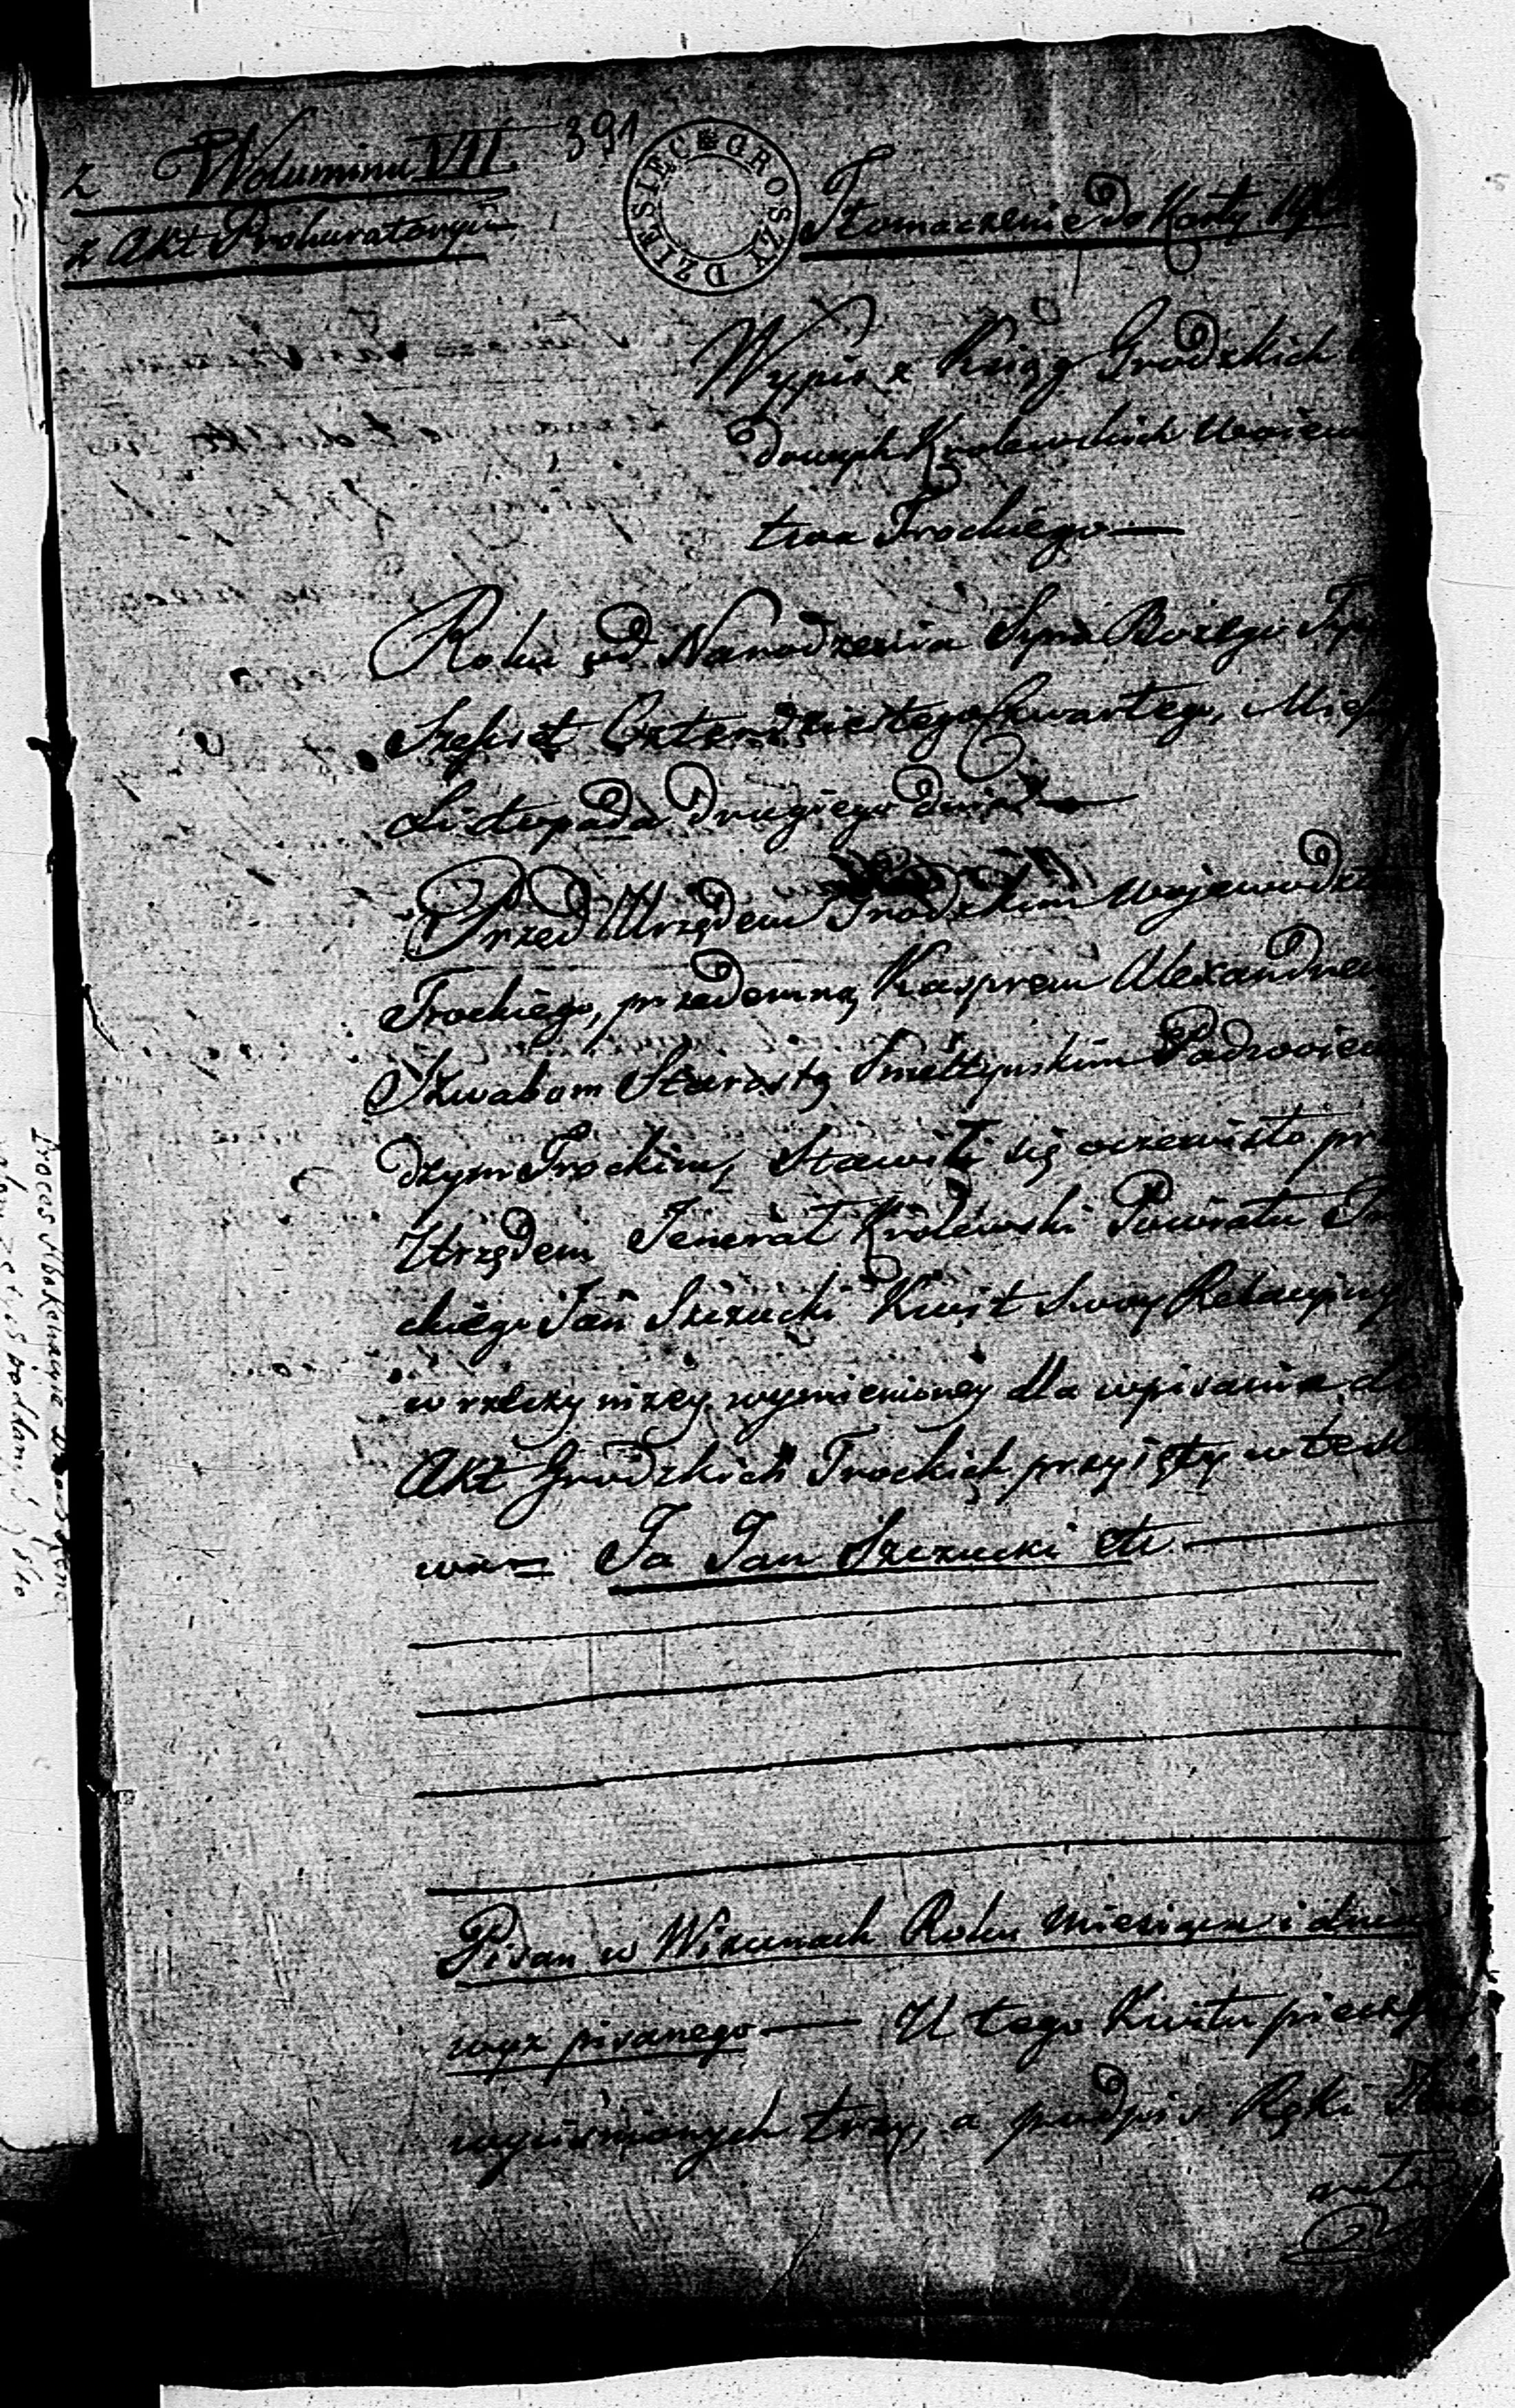 z Woluminu VII
391
z Akt Prokuratoryi
DZIESIĘĆ GROSZY
Tłomaczenie do Karty
Wypis z Xiąg Grodzkich
dowych Krolewskich Wojew
twa Trockiego —
Roku od Narodzenia Syna Bożego Tys
Szesset Czterdziestego Czwartego, Mies
Listopada drugiego dnia —
Przed Urzędem Grodzkim Wojewodz
Trockiego, przedemną Kasprem Alexandrem
Szwabom Starostą Podwojew
dzym Trockim, Stawił się oczewisto prz
Urzędem Jenerał Królewski Powiatu Tro
ckiego Jan Szczucki Kwit Swoy Relacyiny
w rzeczy nizey wymienioney dla wpisania do
Akt Grodzkich Trockich przyięty w te
wa = Ja Jan Szczucki etc —
Pisan w Roku Miesiąca i dnia
wyż pisanego — U tego Kwitu pieczę
wyciśnionych trzy, a podpis Ręki Jene
rała